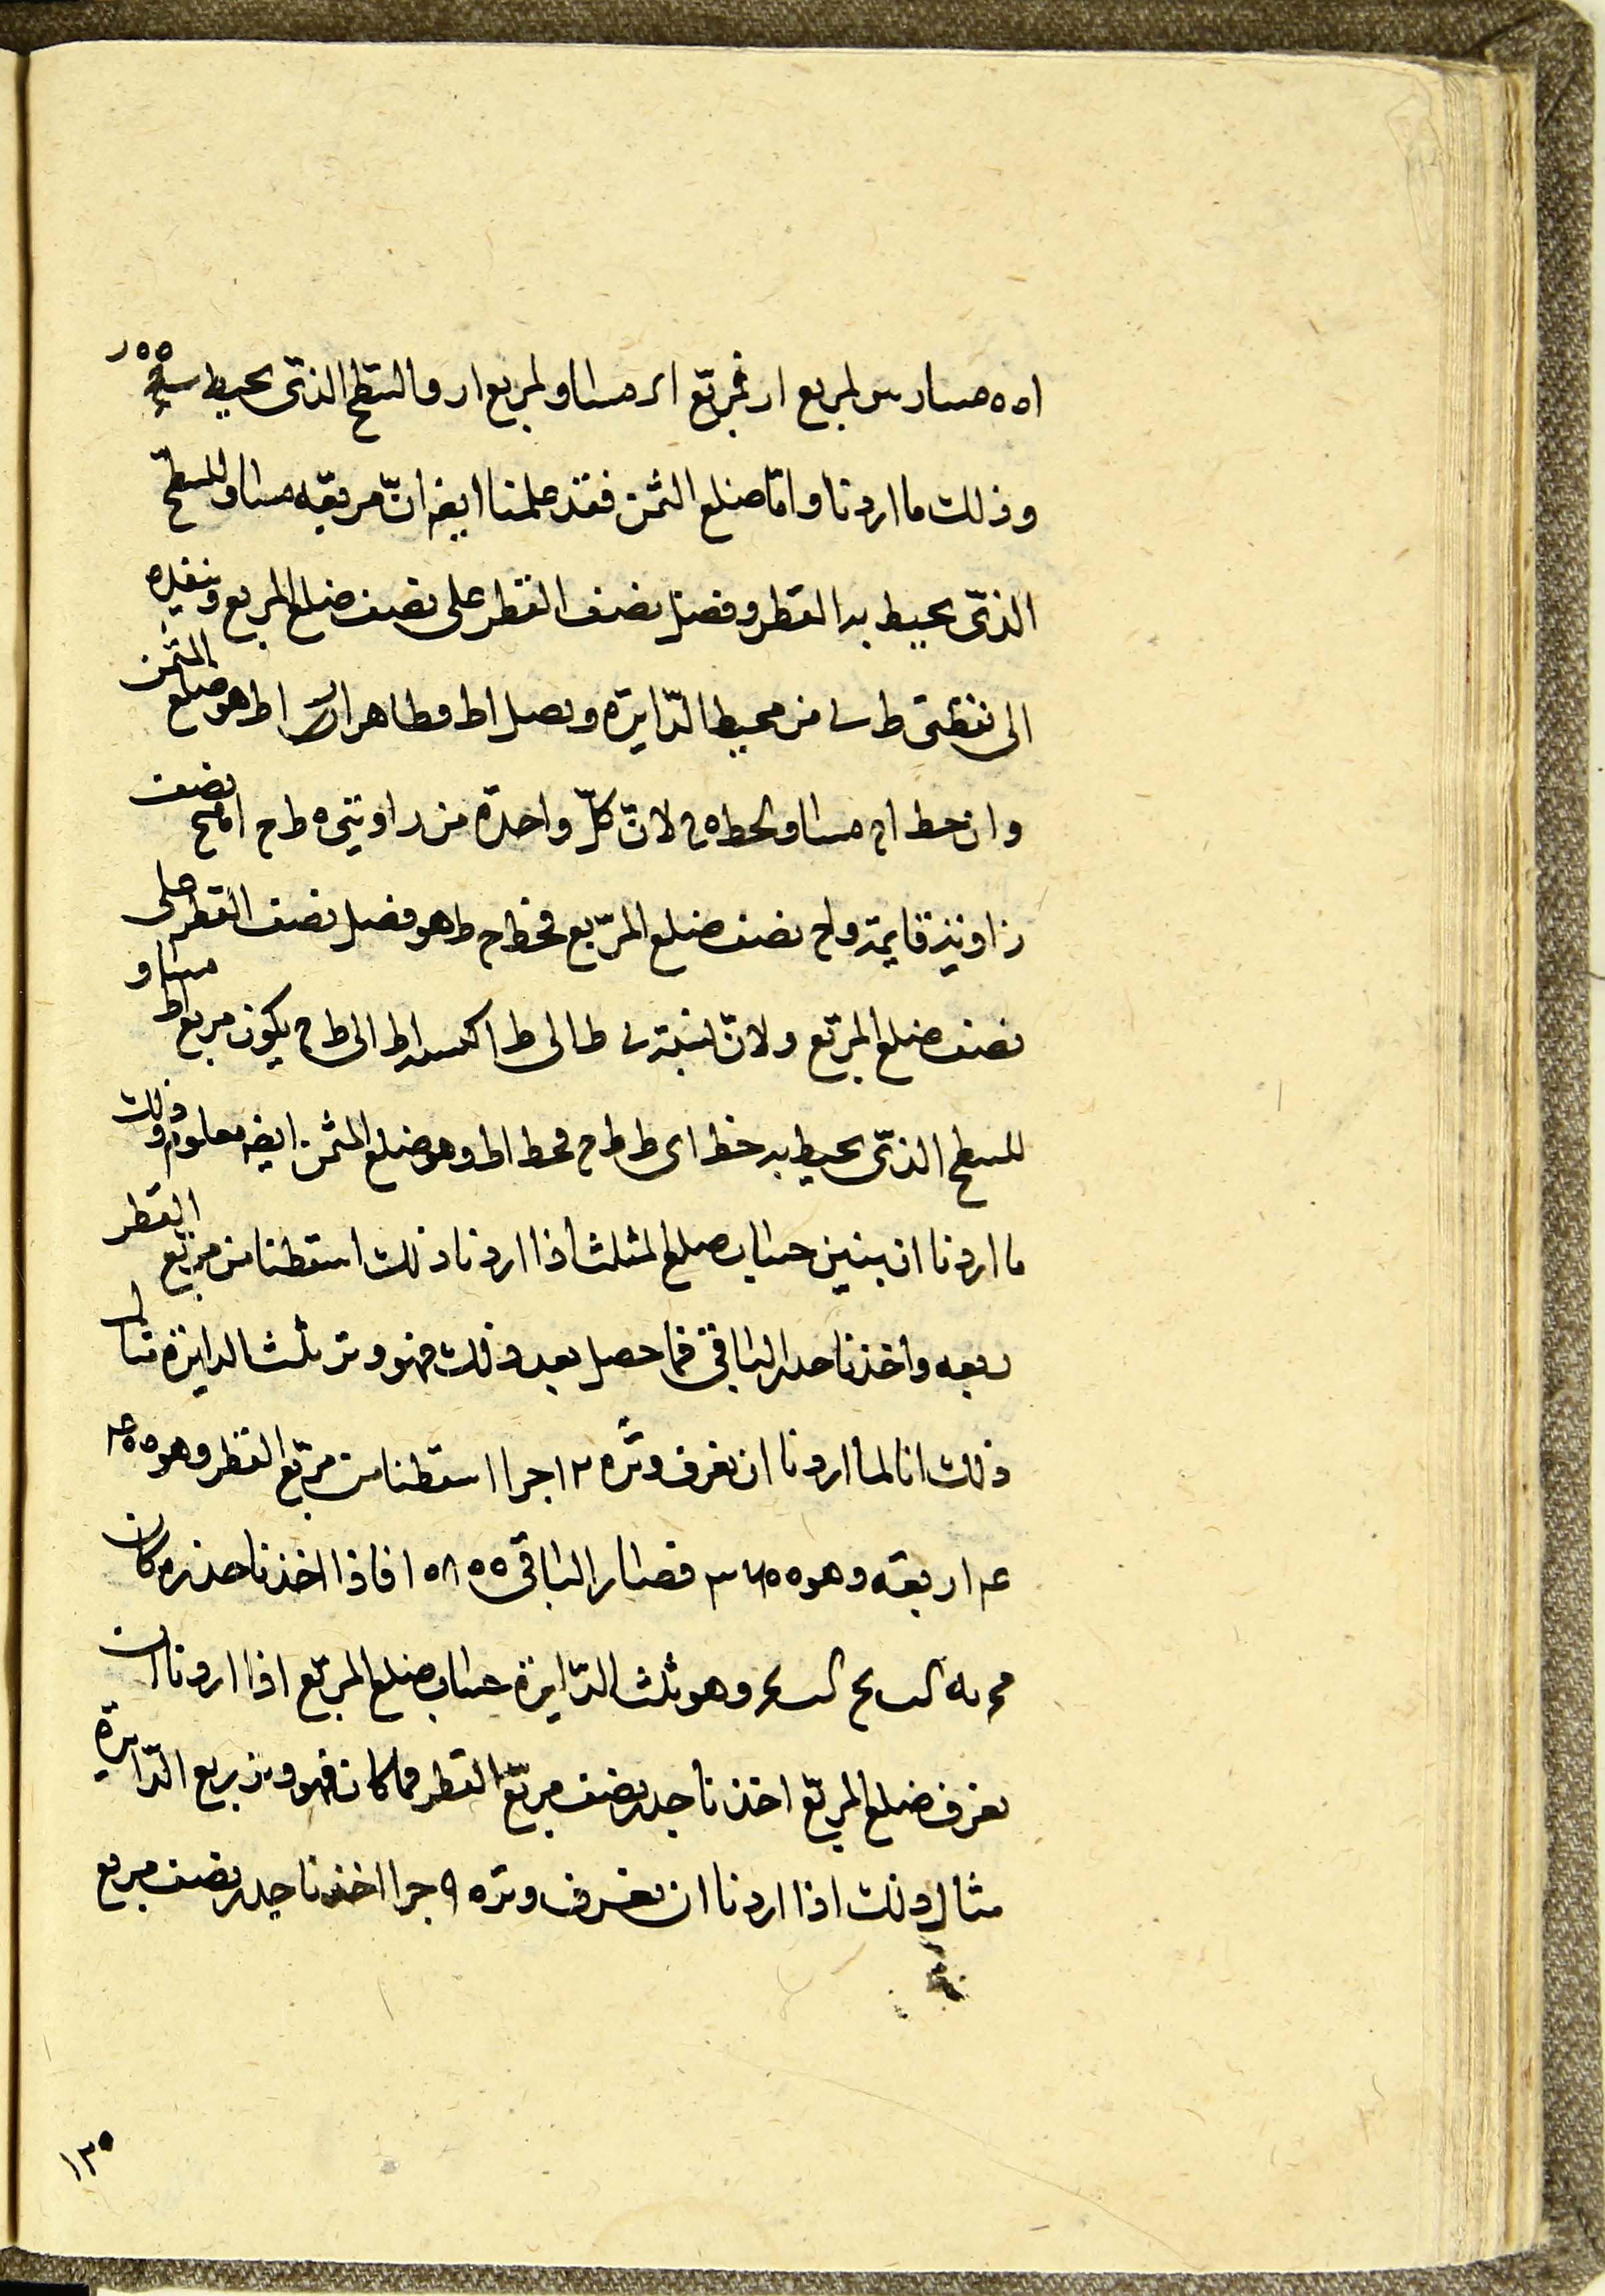 مساو لمربع ار فمربع ار مساو لمربع ار والسطح الذى يحيط
وذلك ما اردنا واما ضلع الثمن فقد علمنا ايضا ان مربعه مساو للسطح
الذى يحيط به القطر وفضل نصف القطر على نصف ضلع المربع وننفذه
الى نقطتى ط ى من محيط الدايرة ونصل اط فظاهر ان اط هو ضلع المثمن
وان خط اح مساو لخط ه ح لان كل واحدة من زاويتى ه ط ح نصف
زاوية قايمة واح نصف ضلع المربع فخط ح ط هو فضل نصف القطر على
نصف ضلع المربع ولان نسبة ى ط الى ط ا كنسبة اط الى ط ح يكون مربع اط مساو
للسطح الذى يحيط به خط اى ط ط ح فخط اط وهو ضلع المثمن ايضا معلوم وذلك
ما اردنا ان نبين حساب ضلع المثلث اذا اردنا ذلك اسقطنا من مربع القطر
ربعه واخذنا جذر الباقى فما حصل بعد ذلك فهو وتر ثلث الدايرة مثال
ذلك انا لما اردنا ان نعرف وتر ١٢٠ جزا اسقطنا من مربع القطر وهو
ربعه وهو ٣٦٠٠ فصار الباقى ١٠٨٠٠ فاذا اخذنا جذره كان
وهو ثلث الدايرة حساب ضلع المربع اذا اردنا ان
نعرف ضلع المربع اخذنا جذر نصف مربع القطر فما كان فهو وتر ربع الدايرة
مثال ذلك اذا اردنا ان نعرف وتر ٩٠ جزا اخذنا جذر نصف مربع
١٣٥